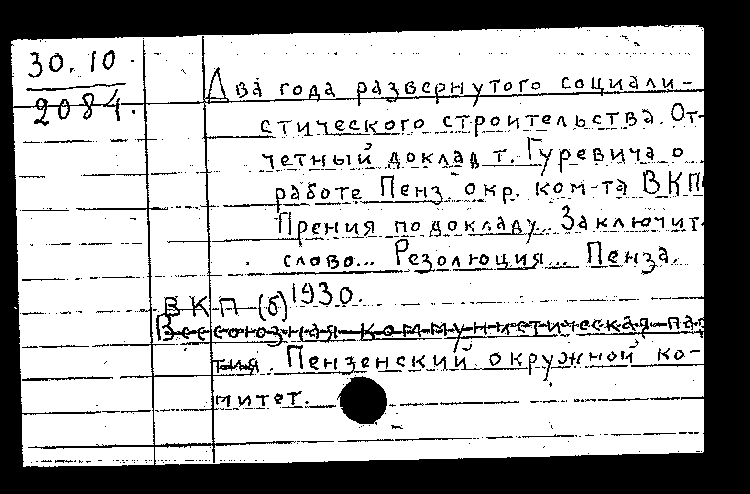 30.10.
2084.
Два года развернутого социали-
стического строительства. От-
четный доклад т. Гуревича о
работе Пенз. окр. ком-та ВКП
Прения по докладу. Заключит.
слово... Резолюция... Пенза,
1930.
ВКП(б)
Всесоюзная коммунистическая пар
тия. Пензенский окружной ко-
митет.